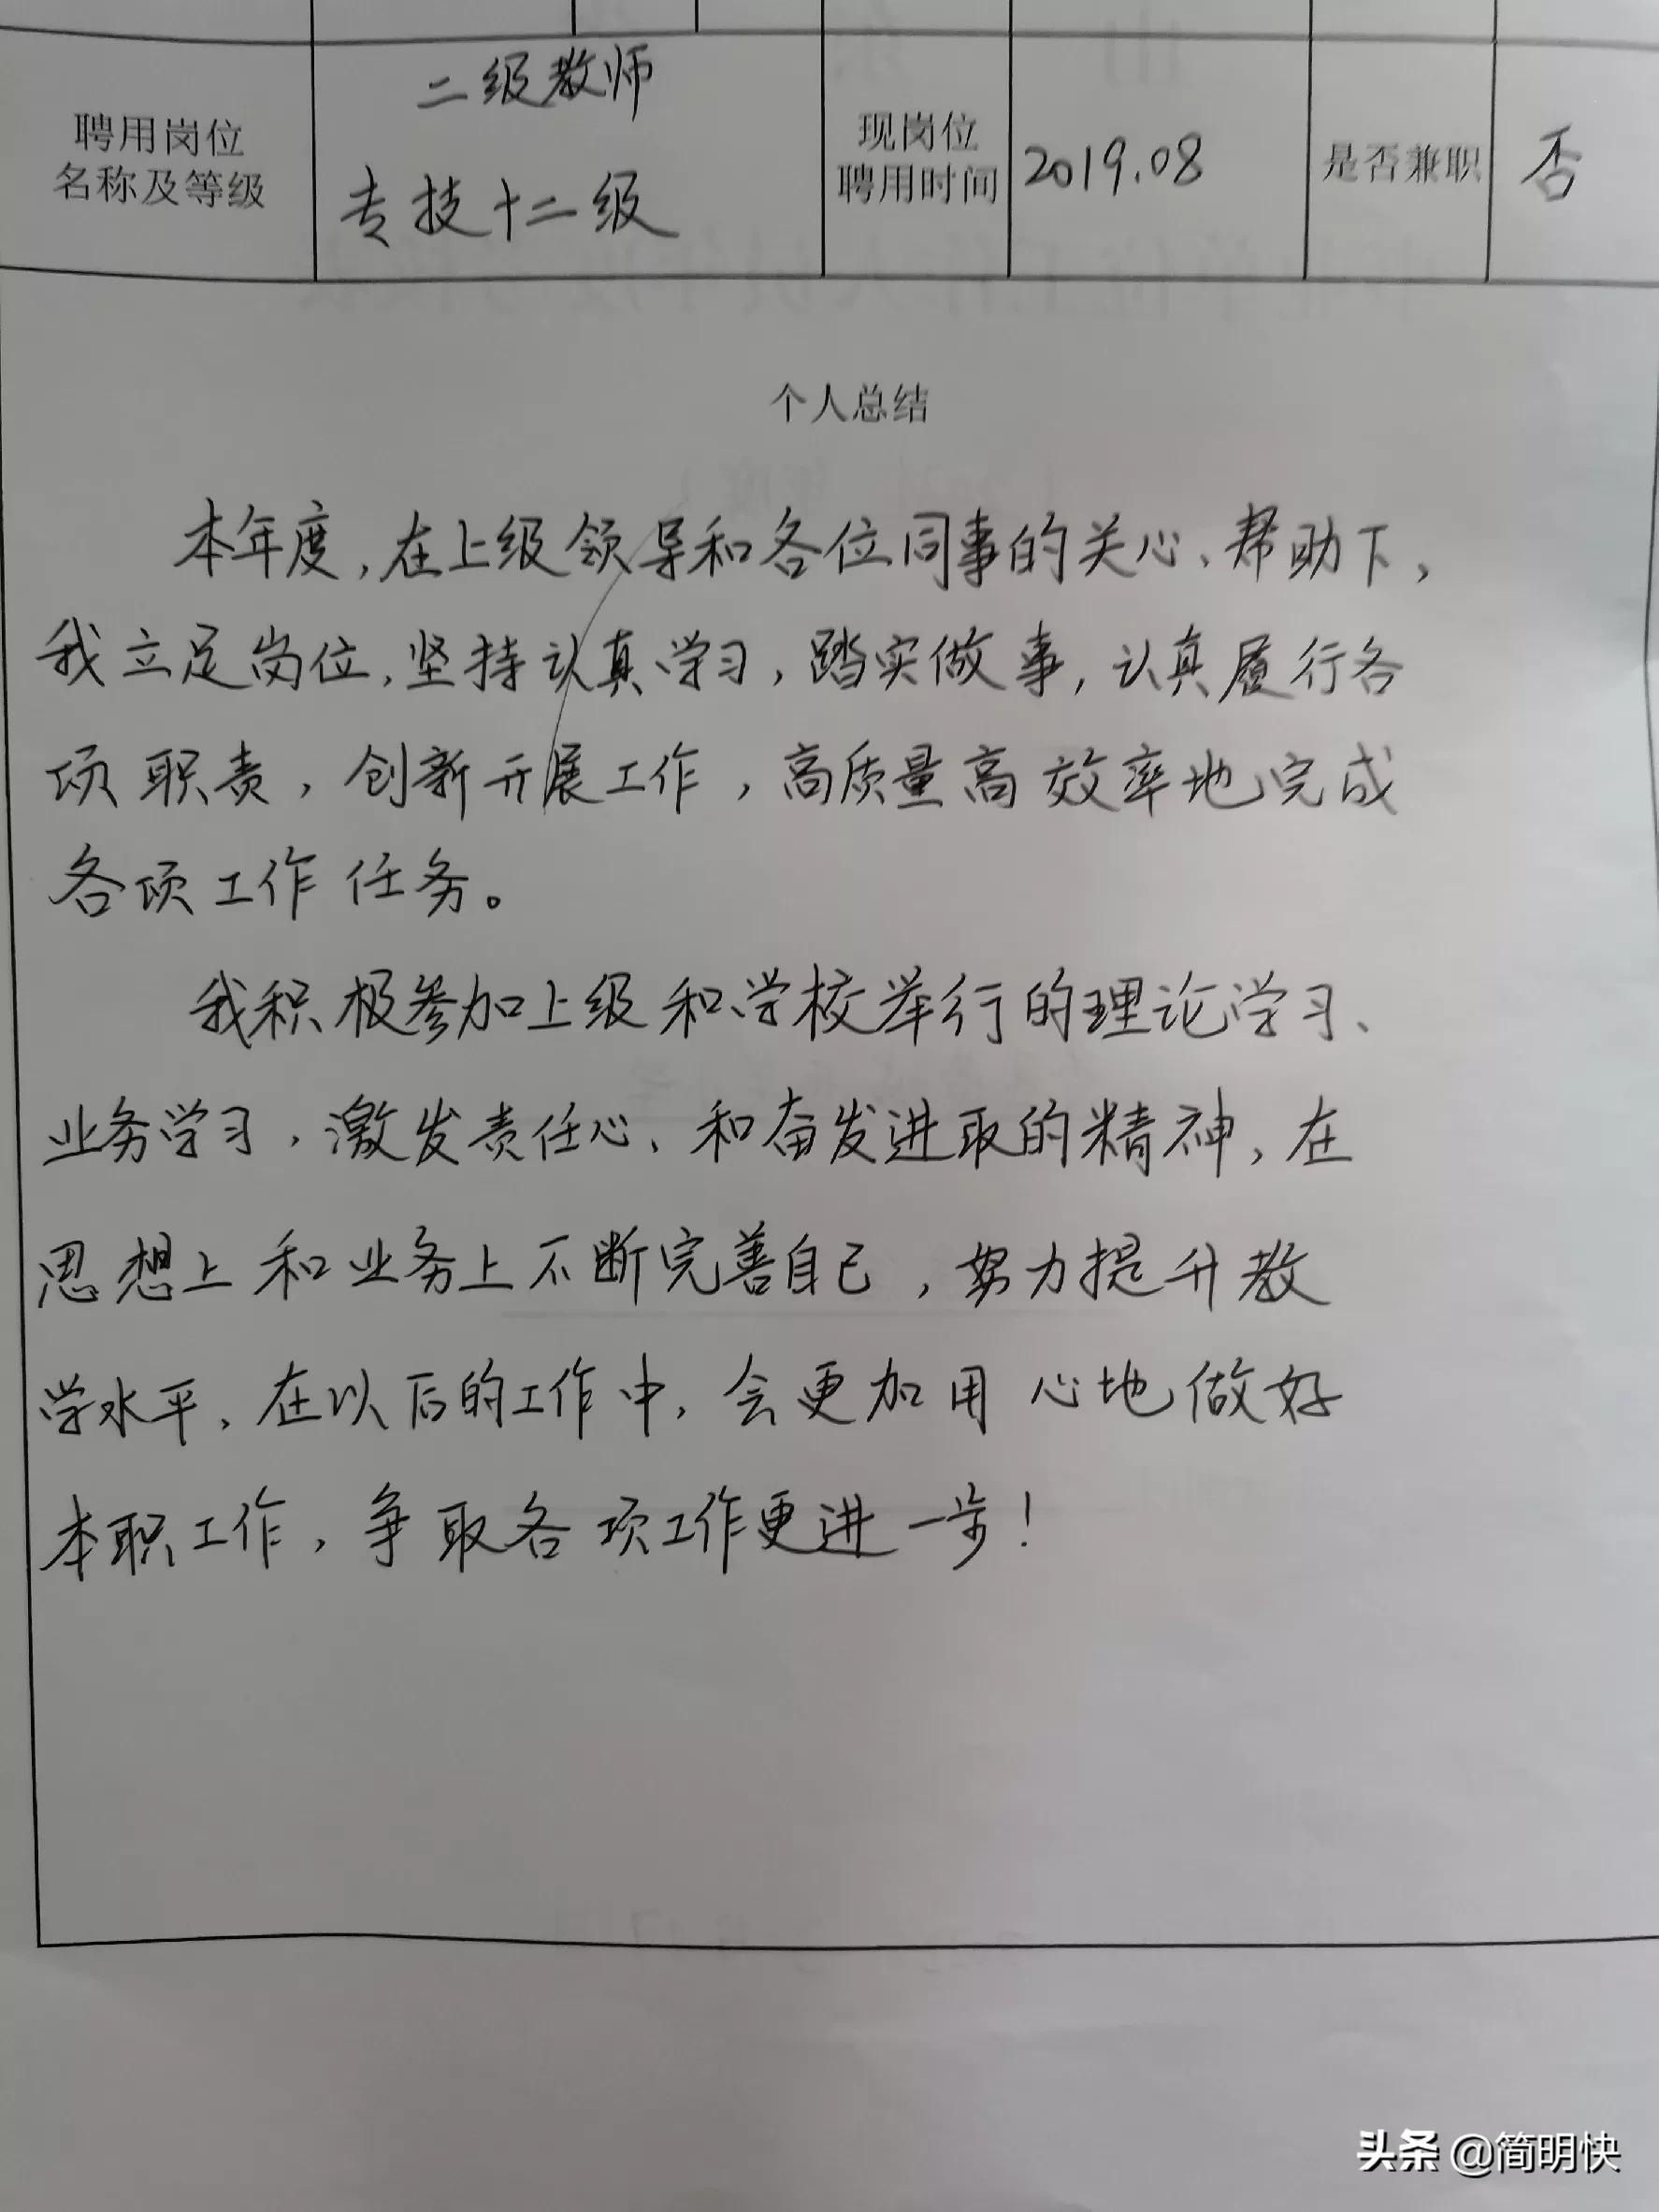 聘用岗位
名称及等级
二级教师
专技十二级
现岗位
聘用时间
2019.08
是否兼职
否
个人总结
本年度,在上级领导和各位同事的关心、帮助下,
我立足岗位,坚持认真学习,踏实做事,认真履行各
项职责,创新开展工作,高质量高效率地完成
各项工作任务。
我积极参加上级和学校举行的理论学习、
业务学习,激发责任心、和奋发进取的精神,在
思想上和业务上不断完善自己,努力提升教
学水平,在以后的工作中,会更加用心地做好
本职工作,争取各项工作更进一步!
头条 @简明快